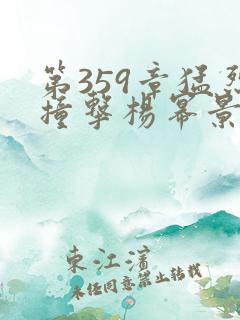 第359章猛烈
撞撃杨幂景
東江濱
未任同意禁止转载